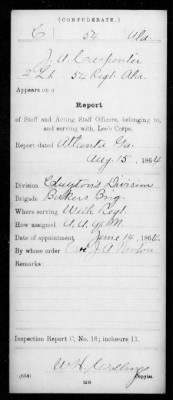 (CONFEDERATE.)
C 54 Ala
J. A. Carpenter
2d Lt. 54 Regt. Ala.
Appears on a
Report
of Staff and Acting Staff Officers, belonging to,
and serving with, Lee's Corps.
Report dated Atlanta Ga.
Aug. 15, 1864
Division Clayton's Division
Brigade Bakers Brig.
Where serving With Regt
How assigned A. A. Q. M.
Date of appointment June 14, 1864.
By whose order J. A.
Remarks:
Inspection Report C, No. 18; inclosure 11.
W. H.
Copyist.